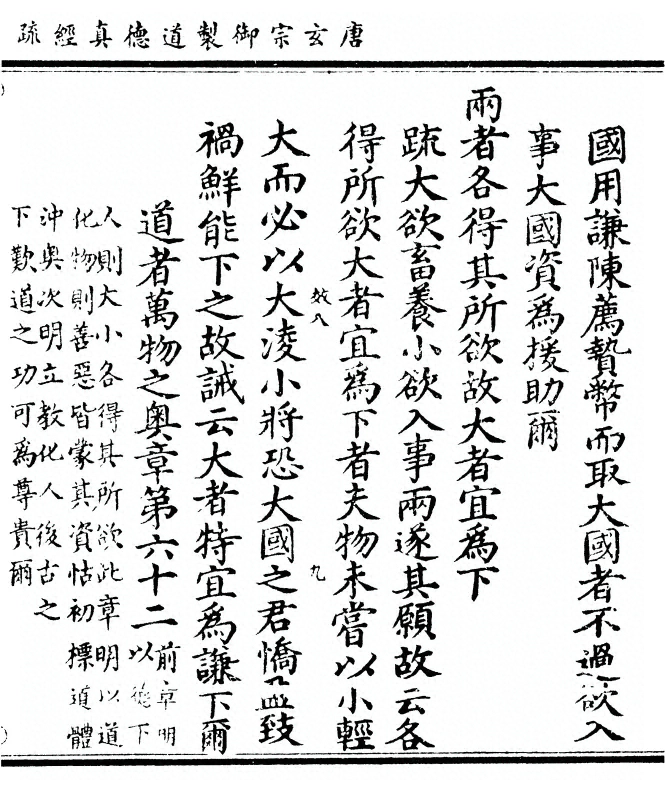 唐玄宗御製道德真經疏
國用謙陳薦贄幣而取大國者不過欲入
事大國資爲援助爾
兩者各得其所欲故大者宜爲下
疏大欲畜養小欲入事兩遂其願故云各
得所欲大者宜爲下者夫物未嘗以小輕
效八
九
大而必以大淩小將恐大國之君憍盈致
禍鮮能下之故誡云大者特宜爲謙下爾
道者萬物之奧章第六十二
前章明
以德下
人則大小各得其所欲此章明以道
化物則善惡皆蒙其資怙初標道體
沖奧次明立教化人後古之
下歎道之功可爲尊貴爾